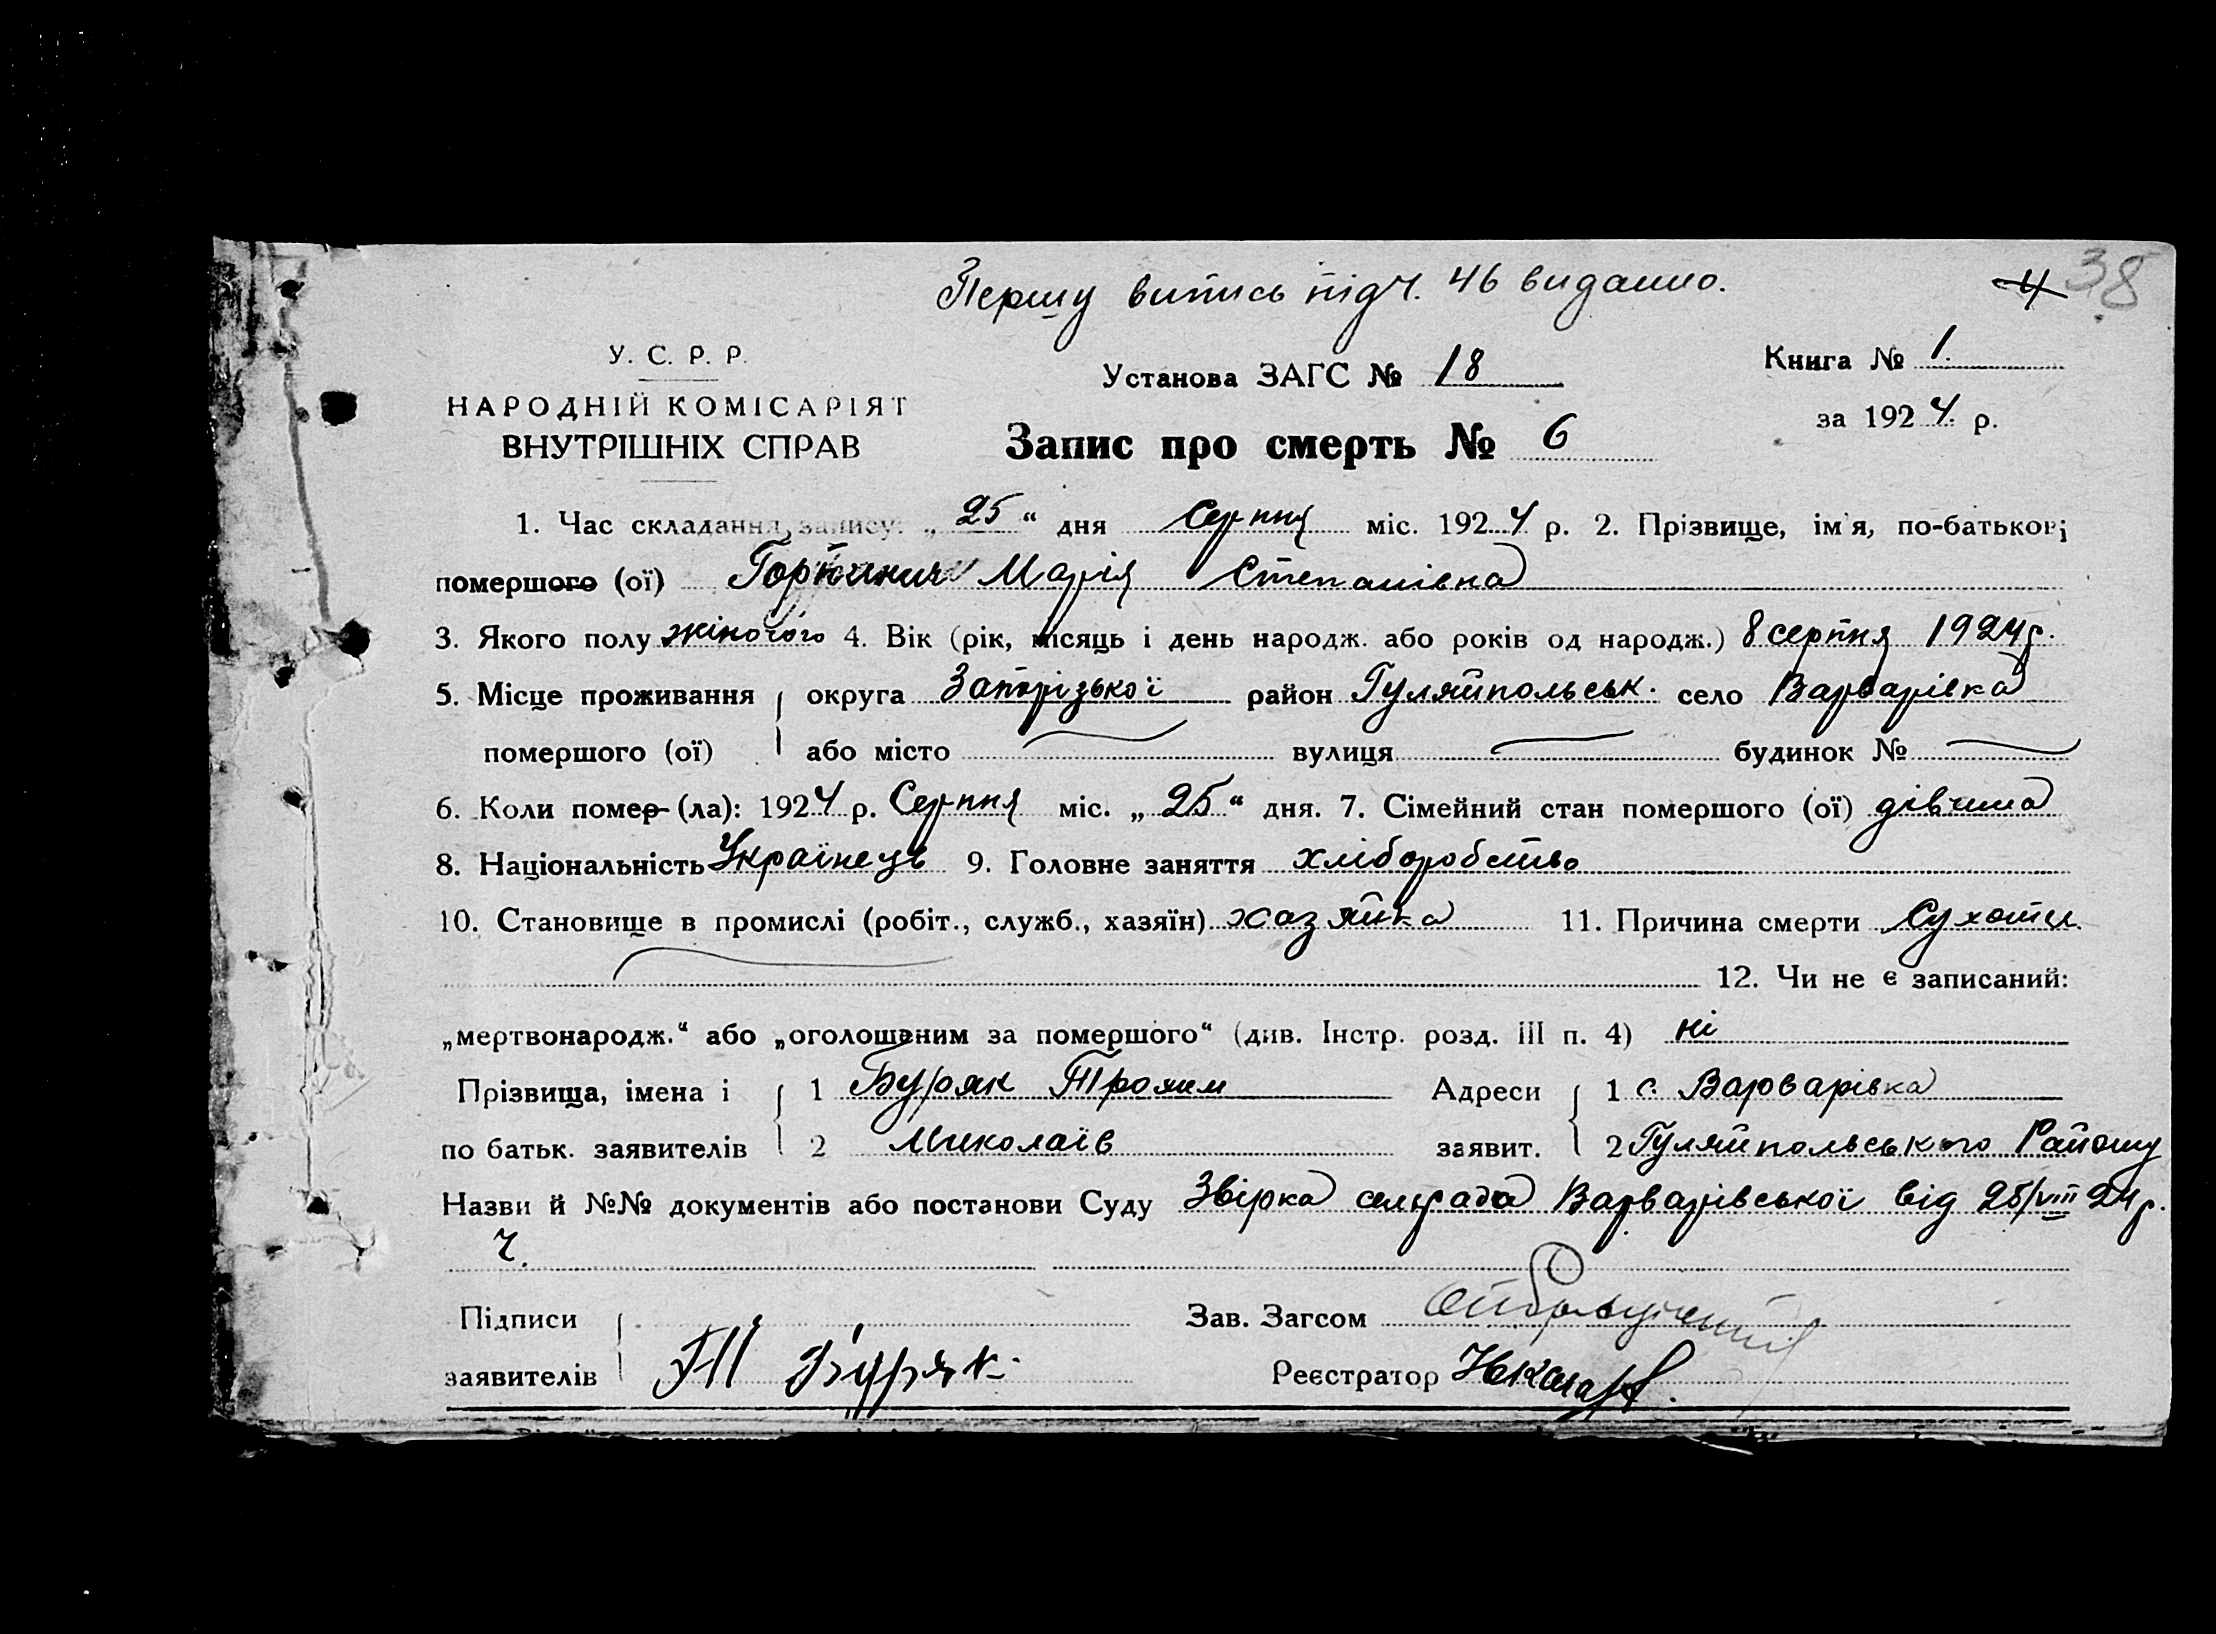 Першу випись під ч. 46 видано.
4 38
У. С. Р. Р.
НАРОДНІЙ КОМІСАРІЯТ
ВНУТРІШНІХ СПРАВ
Установа ЗАГС № 18
Книга № 1.
за 1924 р.
Запис про смерть № 6
1. Час складання запису: „ 25 “ дня Серпня міс. 1924 р. 2. Прізвище, ім'я, по-батькові
помершого (ої) Марія Степанівна
3. Якого полу жіночого 4. Вік (рік, місяць і день народж. або років од народж.) 8 серпня 1924 р.
5. Місце проживання округа Запорізької район Гуляйпольськ. село Варварівка
помершого (ої) або місто вулиця будинок №
6. Коли помер (ла): 1924 р. Серпня міс. „ 25 “ дня. 7. Сімейний стан помершого (ої) дівчина
8. Національність Українець 9. Головне заняття хліборобство
10. Становище в промислі (робіт., служб., хазяїн) хазяйка 11. Причина смерти Сухоти
12. Чи не є записаний:
„мертвонародж.“ або „оголошеним за помершого“ (див. Інстр. розд. III п. 4) ні
Прізвища, імена і 1 Буряк Трохим Адреси 1 с. Варварівка
по батьк. заявителів 2 Миколаїв заявит. 2 Гуляйпольського Району
Назви й №№ документів або постанови Суду Звірка сельрада Варварівської від 25/VIII 24 р.
ч.
Підписи Зав. Загсом
заявителів Т Буряк. Реєстратор